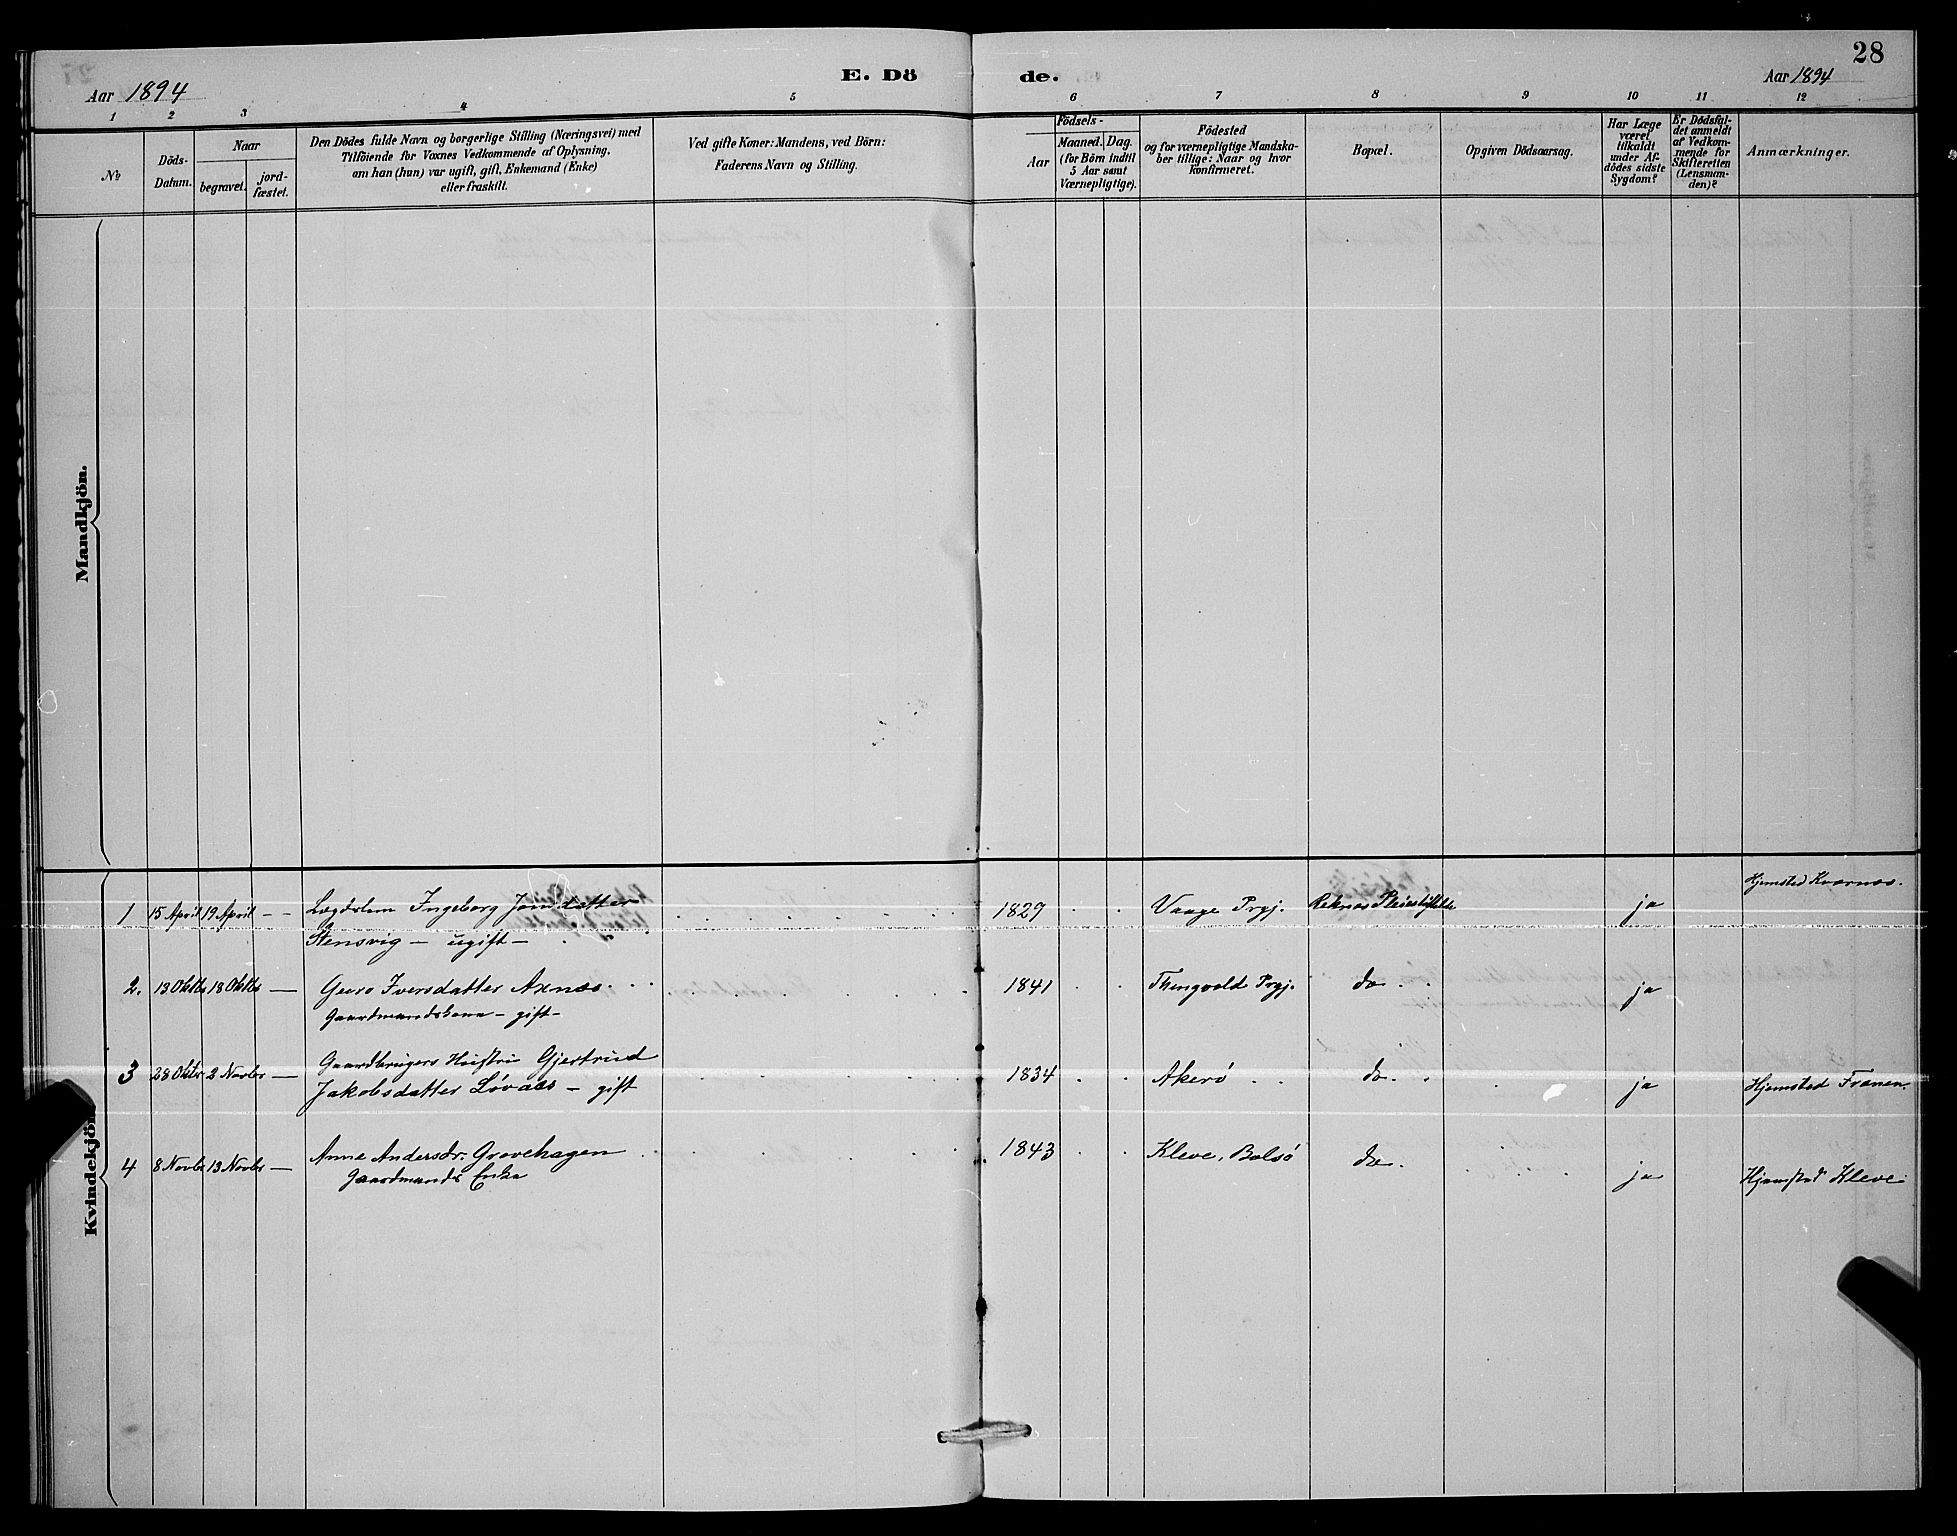 28
E. Dö
de.
Aar 1894
Aar 1894
1 2 3 4 5 6 7 8 9 10 11 12
№
Döds-
Datum.
Naar
begravet.
jord-
fæstet.
Den Dödes fulde Navn og borgerlige Stilling (Næringsvei) med
Tilföiende for Voxnes Vedkommende af Oplysning,
om han (hun) var ugift, gift, Enkemand (Enke)
eller fraskilt.
Ved gifte Koner: Mandens, ved Börn:
Faderens Navn og Stilling.
Födsels-
Aar
Maaned. Dag.
(for Börn indtil
5 Aar samt
Værnepligtige).
Födested
og for værnepligtige Mandska-
ber tillige: Naar og hvor
konfirmeret.
Bopæl.
Opgiven Dödsaarsag.
Har Læge
været
tilkaldt
under Af-
dödes sidste
Sygdom?
Er Dödsfal-
det anmeldt
af Vedkom-
mende for
Skifteretten
(Lensman-
den)?
Anmærkninger.
Mandkjön.
Kvindekjön
Hjemsted Kvarnes.
1 15 April 19 April - - Lægdslem Ingeborg Jonsdatter 1829 Vaage Prgj. Reknes Pleiestiftelse ja
Stensvig - ugift -
2. 13 Oktbr 18 Oktbr - Iversdatter Axnæs 1841 Thingvold Prgj. do. ja
Gaardmandskone - gift -
3 28 Oktbr 2 Novbr - Gaardbrugers Hustru Gjertrud 1834 Akerö do. ja Hjemsted Frænen.
Jakobsdatter Løvaas - gift
4 8 Novbr 13 Novbr - Anne Andersdr. Grovehagen 1843 Kleve, Bolsö do. ja Hjemsted Kleve
Gaardmands Enke